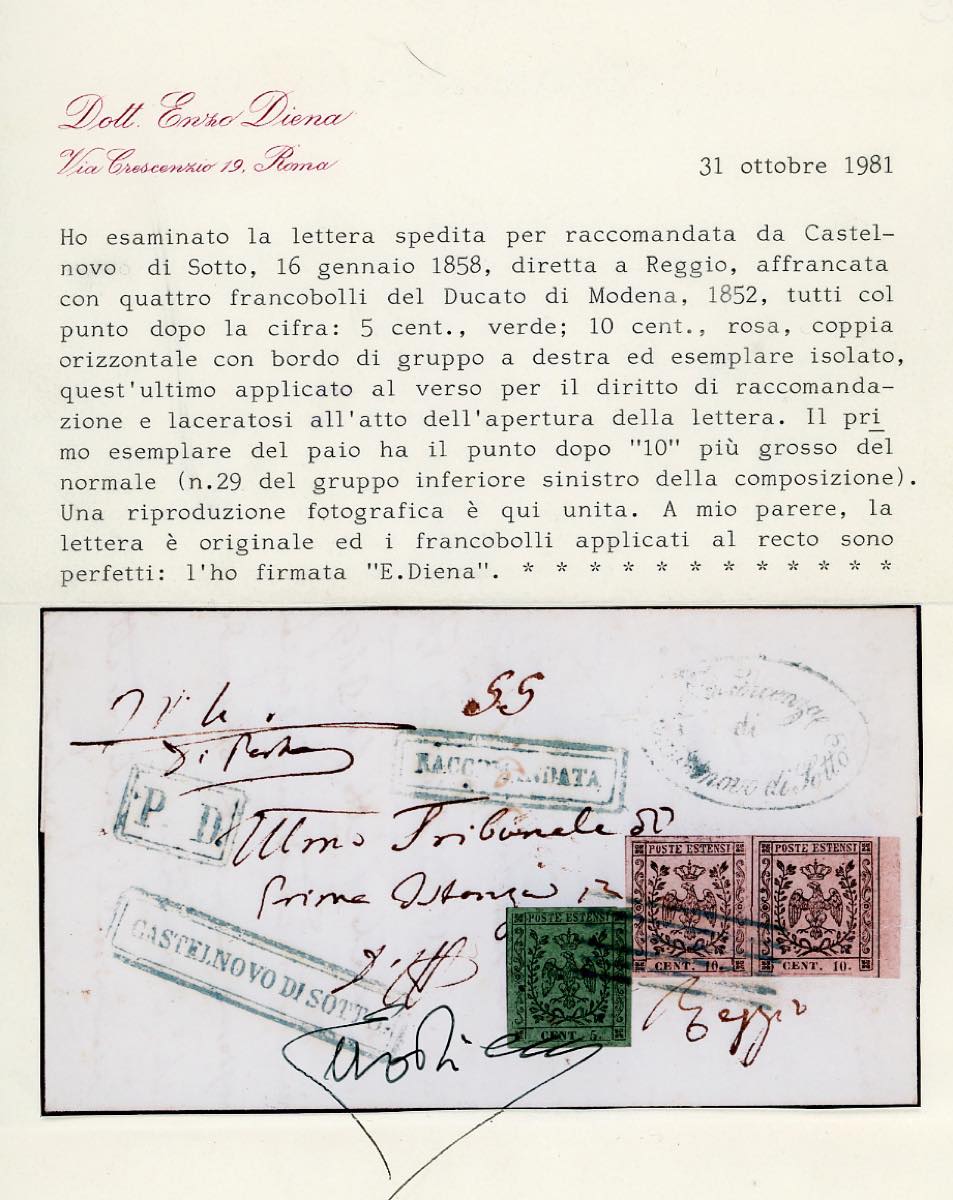 Dott. Enzo Diena
Via Crescenzio 19, Roma
31 ottobre 1981
Ho esaminato la lettera spedita per raccomandata da Castel-
novo di Sotto, 16 gennaio 1858, diretta a Reggio, affrancata
con quattro francobolli del Ducato di Modena, 1852, tutti col
punto dopo la cifra: 5 cent., verde; 10 cent., rosa, coppia
orizzontale con bordo di gruppo a destra ed esemplare isolato,
quest'ultimo applicato al verso per il diritto di raccomanda-
zione e laceratosi all'atto dell'apertura della lettera. Il pri
mo esemplare del paio ha il punto dopo "10" più grosso del
normale (n.29 del gruppo inferiore sinistro della composizione).
Una riproduzione fotografica è qui unita. A mio parere, la
lettera è originale ed i francobolli applicati al recto sono
perfetti: l'ho firmata "E.Diena". * * * * * * * * * * * *
55
di
novo di Sotto
RACCOMANDATA
P. D.
Tribunale di
Prima Istanza in
POSTE ESTENSI
CENT. 10.
POSTE ESTENSI
CENT. 10.
POSTE ESTENSI
CENT. 5.
CASTELNOVO DI SOTTO
Reggio